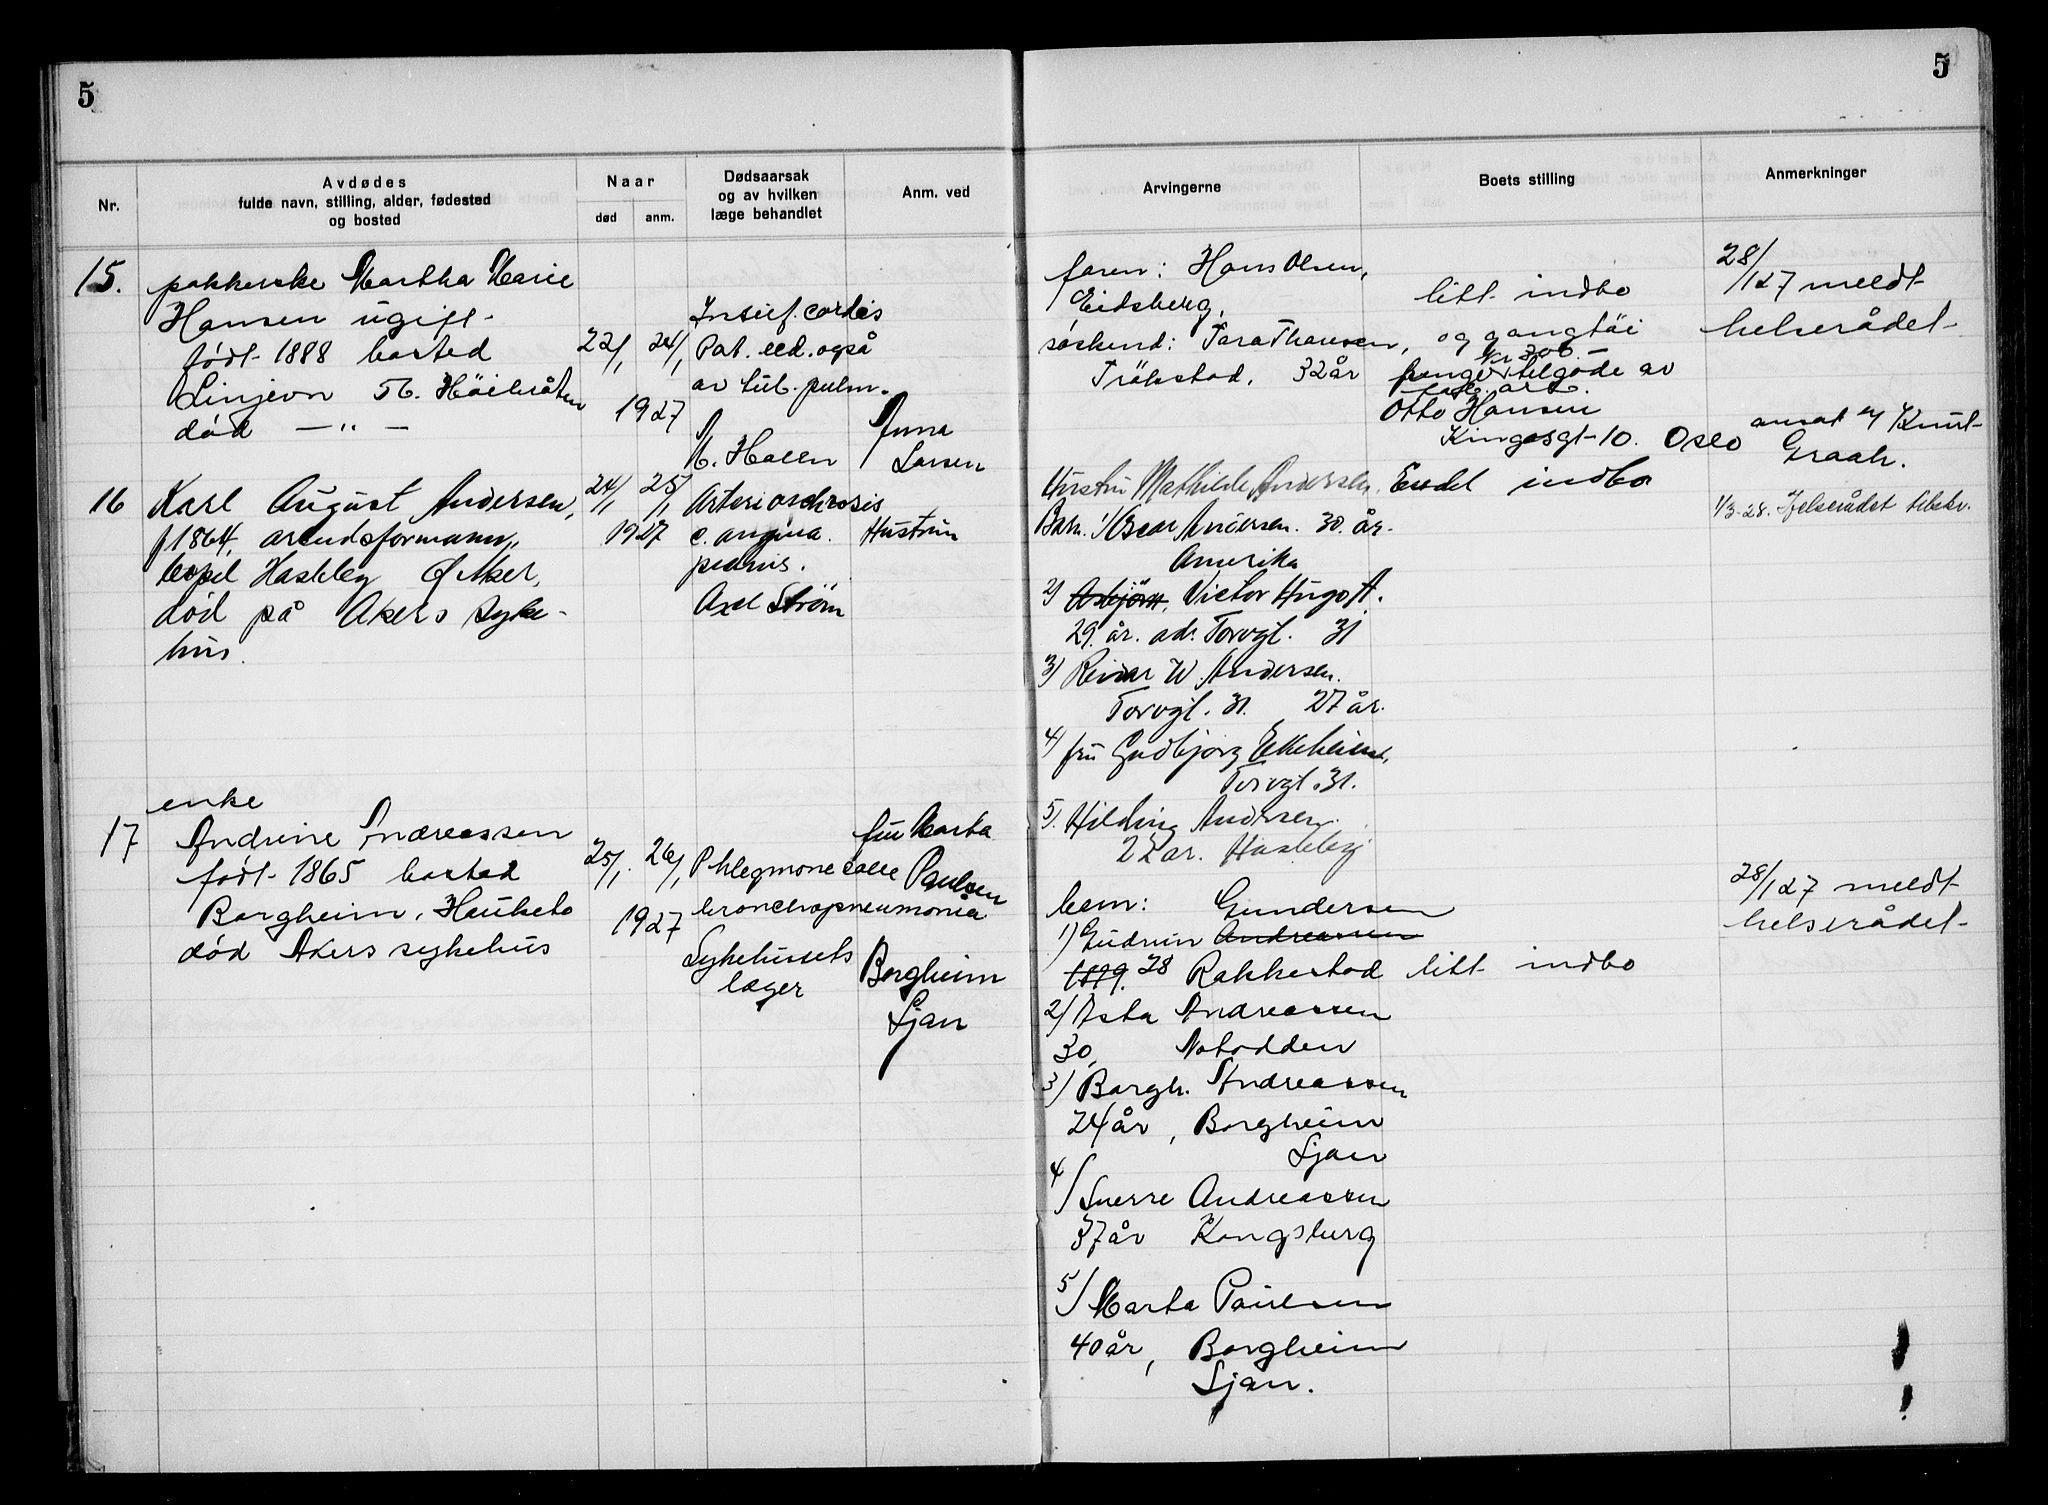 5
5
Nr.
Avdødes
fulde navn, stilling, alder, fødested
og bosted
Naar
død
anm.
Dødsaarsak
og av hvilken
læge behandlet
Anm. ved
Arvingerne
Boets stilling
Anmerkninger
15.
pakkerske Martha Marie
Hansen ugift
født 1888 bosted
Linjevn 56. Höibråten
død — " —
22/1 24/1
1927
Insuf. cordis
Pat. led. også
av tub. pulm.
Anna
Larsen
faren: Hans Olsen,
Eidsberg,
søskend:
Trøkstad, 32 år
litt indbo
og gangtöi
penge tilgode av
Otto Hansen
Kingosgt 10. Oslo
28/1 27 meldt
helserådet
ansat Knut
Graah.
16
Karl August Andersen,
f 1864, arbeidsformann,
bopel Hasleby Ø Aker,
død på Akers syke-
hus.
24/1 25/1
1927
Arteriosclerosis
c. angina
Axel Ström
Hustrun
Hustru Mathilde Andersen.
Barn. 1/ Oscar Andersen. 30. år.
Amerika
2) Asbjørn, Victor Hugo A.
29. år. ad. Torvgt. 31
3) Reidar W. Andersen.
Torvgt. 31. 27 år.
4) fru Gudbjørg
Torvgt. 31.
5). Hilding Andersen.
22 år. Hasleby
Endel indbo
1/3-28. Helserådet tilskr.
17
enke
Andrine Andreassen
født 1865 bosted
Borgheim, Hauketo
død Akers sykehus
25/1. 26/1
1927
Phlegmone colli
bronchopneumonia
Sykehusets
læger
fru Marta
Paulsen
Borgheim
Ljan
barn: Gundersen
1) Gudrun Andreassen
1899. 28 Rakkestad
2/ Asta Andreassen
30, Notodden
3/ Borgh. Andreassen
24 år, Borgheim
Ljan
4/ Sverre Andreassen
37 år Kongsberg
5/ Marta Paulsen
40 år, Borgheim
Ljan.
litt indbo
28/1 27 meldt
helserådet